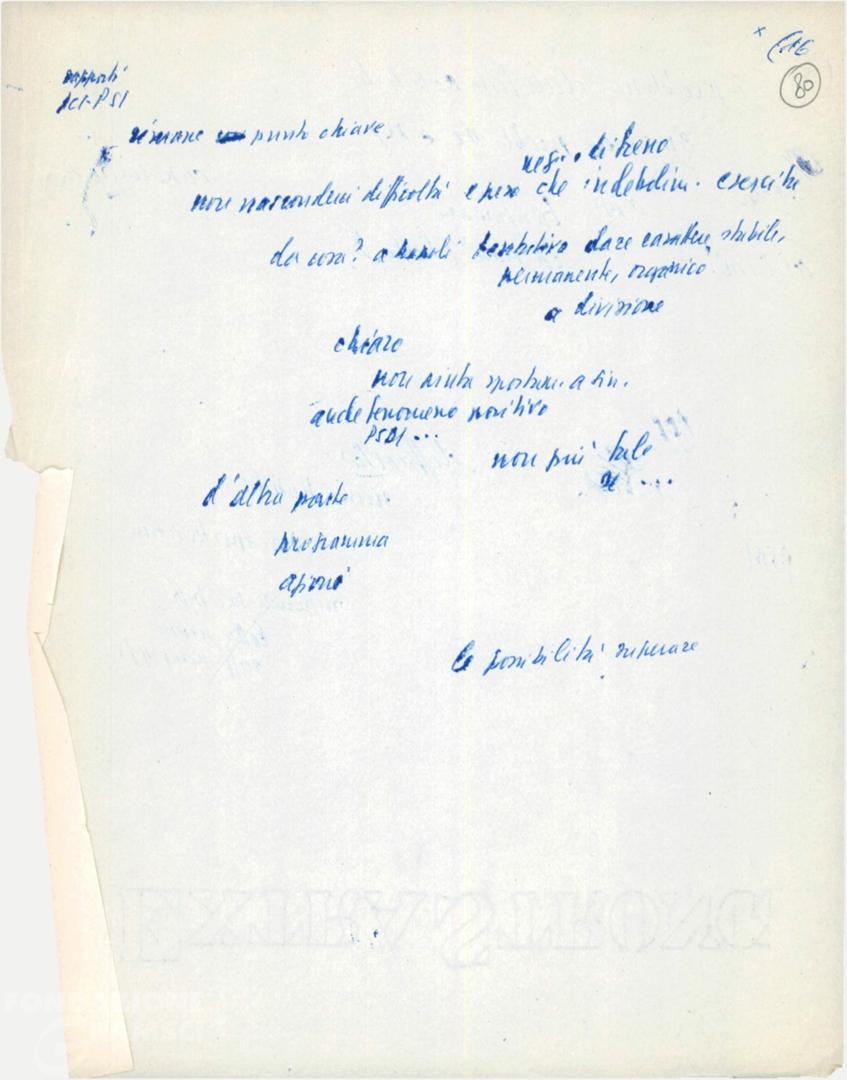 80
rapporti
PCI-PSI
rimane punto chiave
negi. di freno
non nascondersi difficoltà e peso che indebolim. esercita
da cosa? a tentativo dare carattere stabile,
permanente, organico
a divisione
chiaro
non aiuta spostam. a sin.
anche fenomeno positivo
PSDI ...
non più tale
se ...
d'altra parte
programma
azioni
le possibilità superare
FONDAZIONE
GRAMSCI